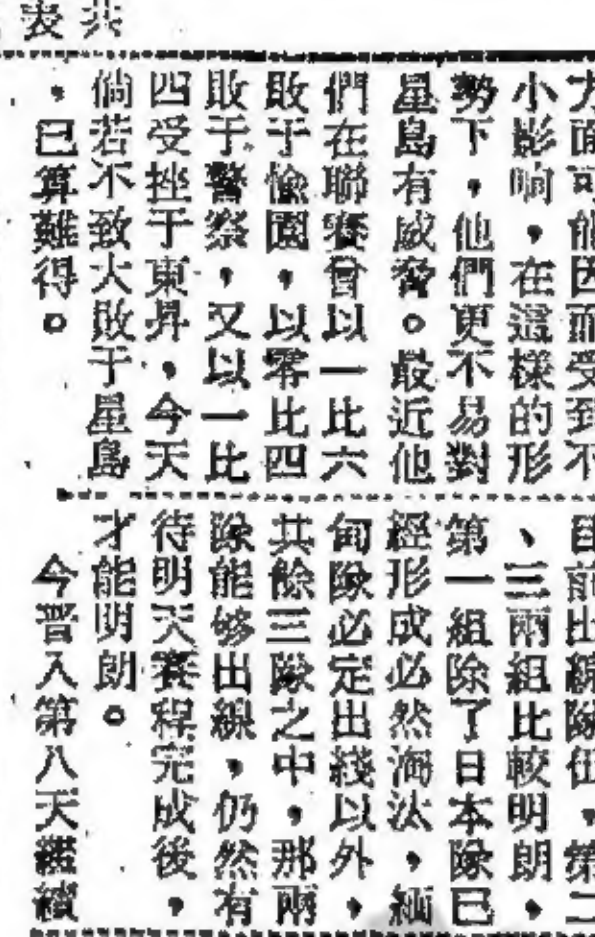 共表
力面可能因而受到不
小影响，在這樣的形
勢下，他們更不易對
星島有威脅。最近他
們在聯賽曾以一比六
敗于愉園，以零比四
敗于警察，又以一比
四受挫于東昇，今天
倘若不致大敗于星島
，已算難得。
目前出線隊伍，第二
、三兩組比較明朗，
第一組除了日本隊已
經形成必然淘汰，緬
甸隊必定出綫以外，
其餘三隊之中，那兩
隊能够出線，仍然有
待明天賽程完成後，
才能明朗。
今晋入第八天繼續